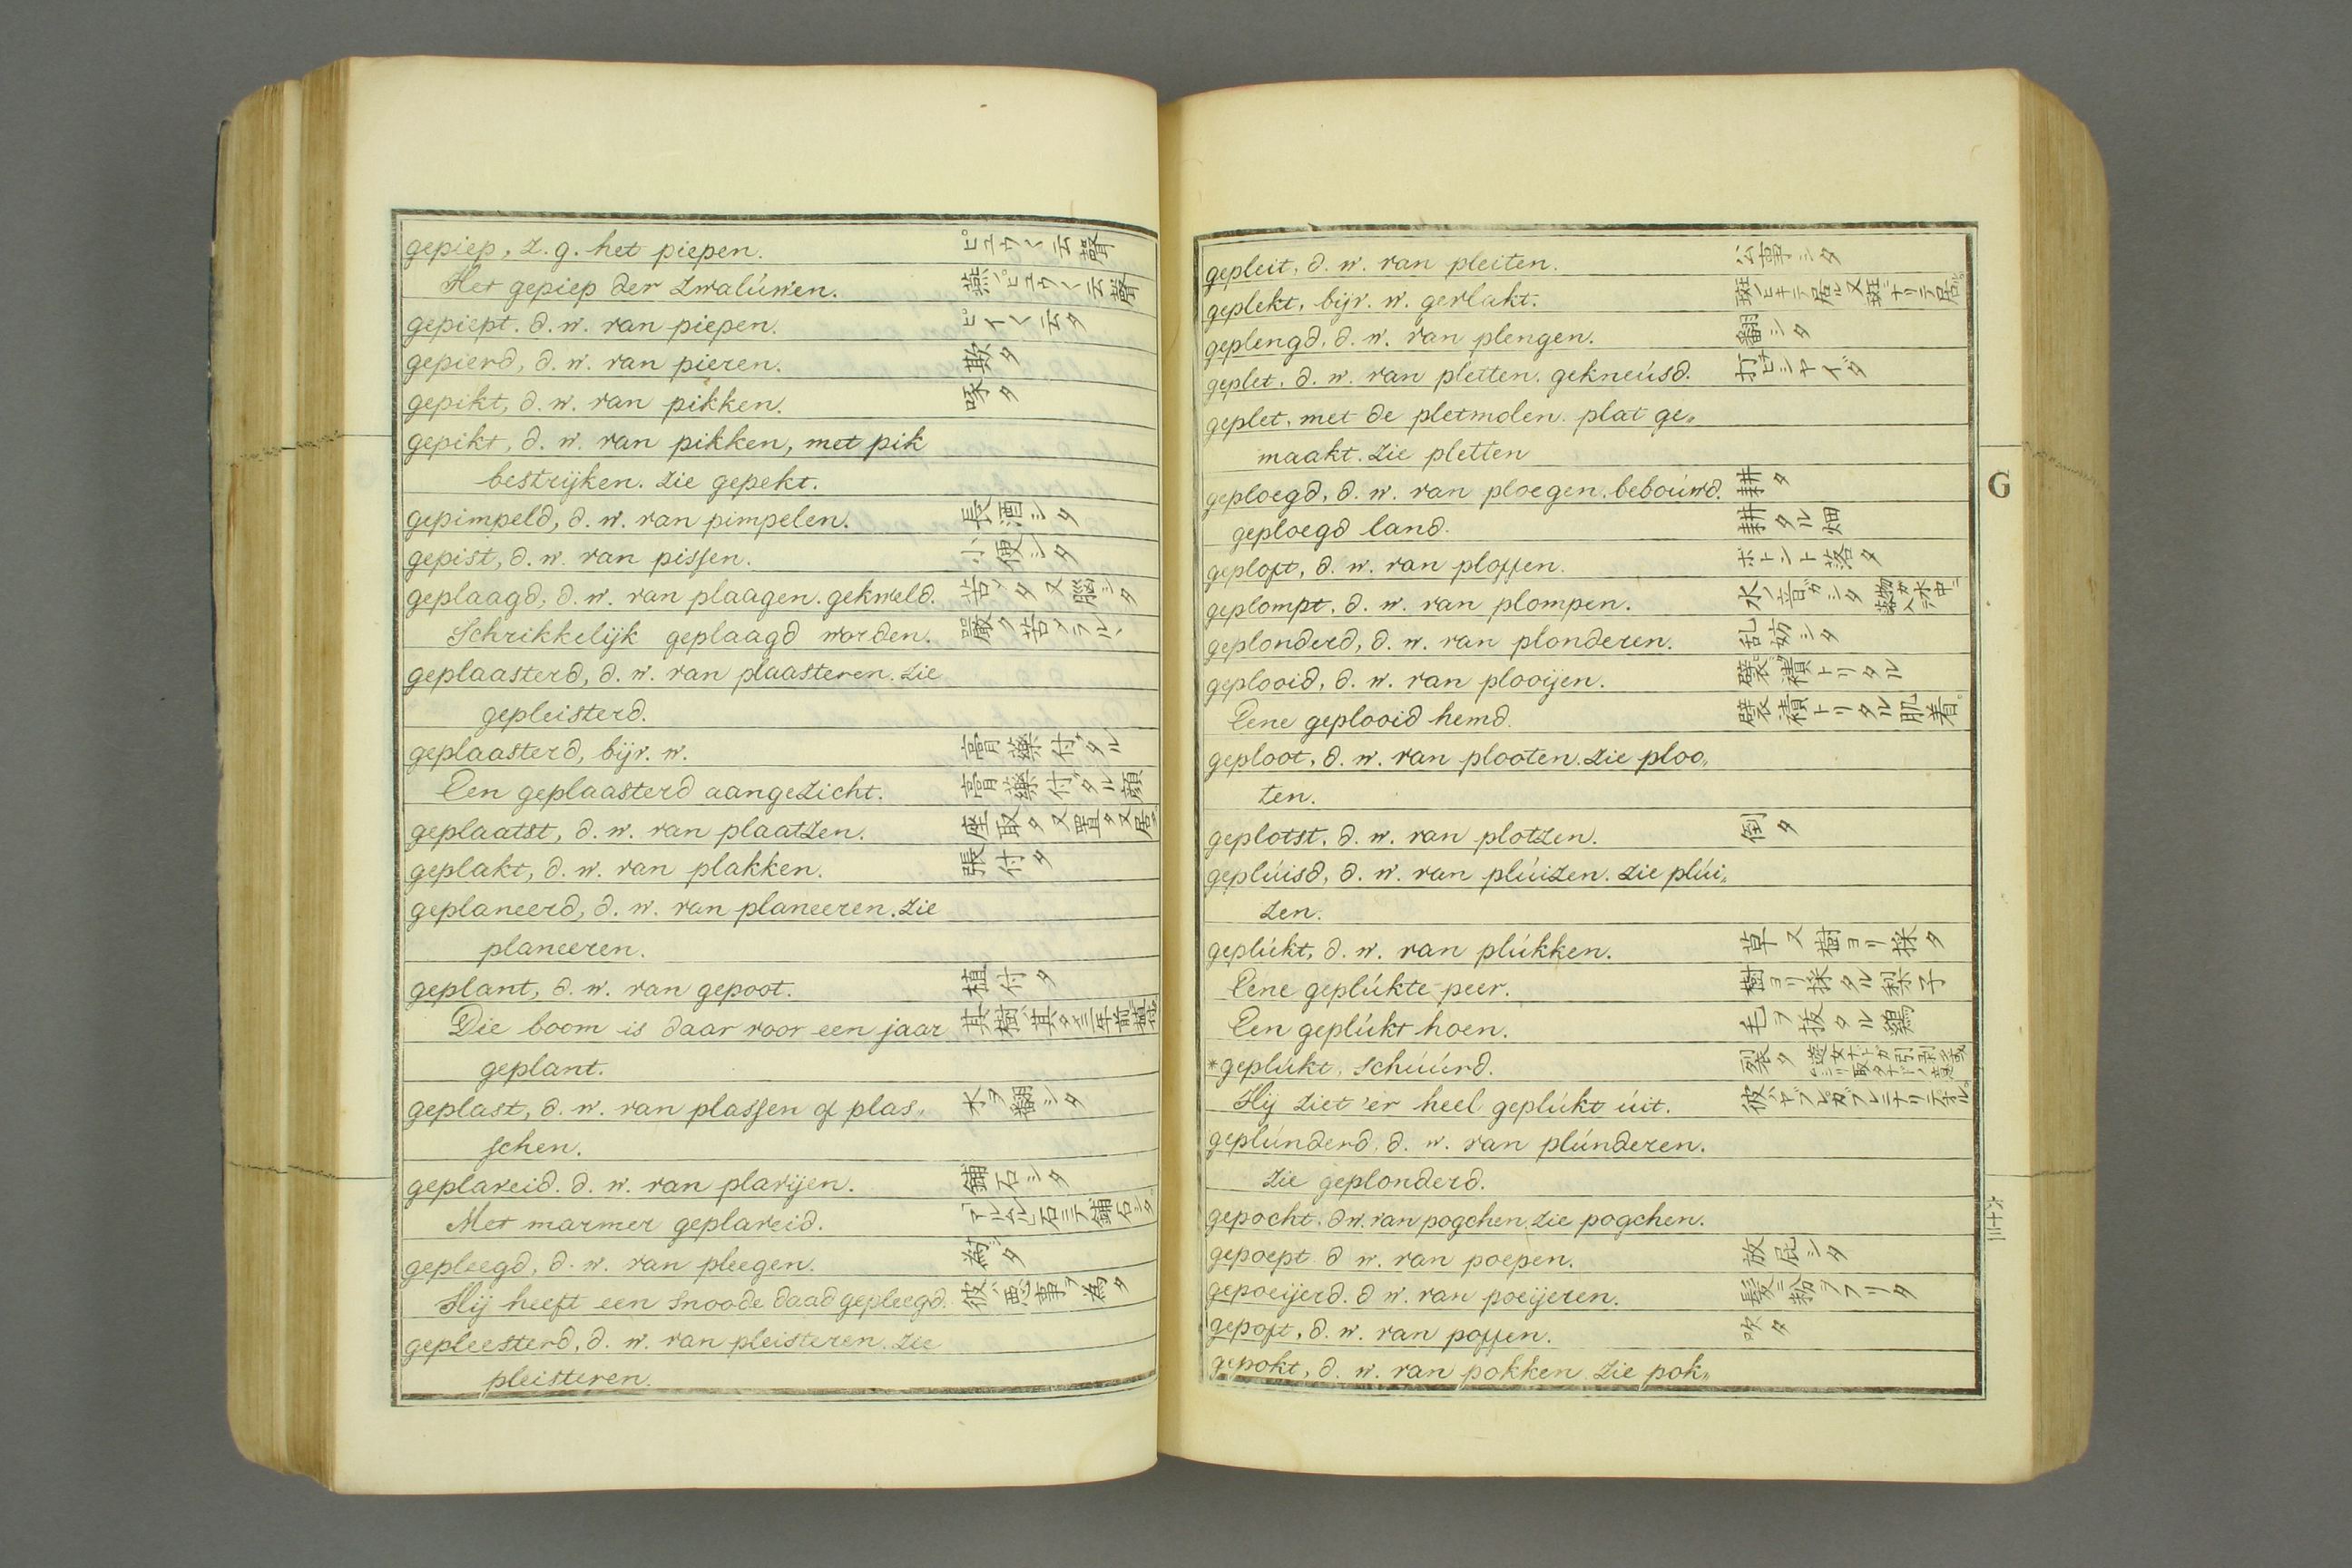 gepiep, z. g. het piepen. ピユウ〱云聲
Het gepiep der zwalúwen. 燕ノピユウ〱云聲
gepiept. d. w. van piepen. ピイ〱云タ
gepierd, d. w. van pieren. 欺タ
gepikt, d. w. van pikken. 啄タ
gepikt, d. w. van pikken, met pik
bestrijken. zie gepekt.
gepimpeld, d. w. van pimpelen. 長酒シタ
gepist, d. w. van pissen. 小便シタ
geplaagd, d. w. van plaagen. gekweld. 苦シタ又腦シタ
Schrikkelijk geplaagd worden. 嚴ク苦メラルヽ
geplaasterd, d. w. van plaasteren. zie
gepleisterd.
geplaasterd, bijv. w. 膏藥付タル
Een geplaasterd aangezicht. 膏藥付タル顔
geplaatst, d. w. van plaatzen. 座取タ又置タ又居
geplakt, d. w. van plakken. 張付タ
geplaneerd, d. w. van planeeren. zie
planeeren.
geplant, d. w. van gepoot. 植付タ
Die boom is daar voor een jaar 其樹ハ其
geplant.
geplast, d. w. van plassen of plas„ 水ヲ翻シタ
schen.
geplaveid. d. w. van plavijen. 鋪石シタ
Met marmer geplaveid. 石ニテ鋪石シタ
gepleegd, d. w. van pleegen. 為シタ
Hij heeft een snoode daad gepleegd. 彼ハ悪事ヲ為タ
gepleesterd, d. w. van pleisteren. zie
pleisteren.
gepleit, d. w. van pleiten. 公事シタ
geplekt, bijv. w. gevlakt. 斑ノ付テ居ル又斑ニナリテ居
geplengd, d. w. van plengen. 翻シタ
geplet, d. w. van pletten. gekneúsd. 打ヒシヤイダ
geplet, met de pletmolen. plat ge„
maakt. zie pletten
geploegd, d. w. van ploegen. beboúwd. 耕タ
geploegd land. 耕タル畑
geploft, d. w. van ploffen. ボトント落タ
geplompt, d. w. van plompen. 水ノ音ガシタ
geplonderd, d. w. van plonderen. 乱妨シタ
geplooid, d. w. van plooijen. 襞積トリタル
Eene geplooid hemd. 襞積トリタル肌着
geploot, d. w. van plooten. zie ploo„
ten.
geplotst. d. w. van plotzen. 倒タ
geplúisd, d. w. van plúizen. zie plúi„
zen.
geplúkt, d. w. van plúkken. 草又樹ヨリ採タ
Eene geplúkte peer. 樹ヨリ採タル梨子
Een geplúkt hoen. 毛ヲ抜タル鶏
*geplúkt, schúúrd. 裂タ
Hij ziet 'er heel geplúkt úit. 彼ハヤブレカブレニナリテ
geplúnderd. d. w. van plúnderen.
zie geplonderd.
gepocht. dw. van pogchen. zie pogchen.
gepoept d w. van poepen. 放屁シタ
gepoeijerd. d w. van poeijeren. 髪ニ粉ヲフリタ
gepoft, d. w. van poffen. 吹タ
gepokt, d. w. van pokken. zie pok„
G